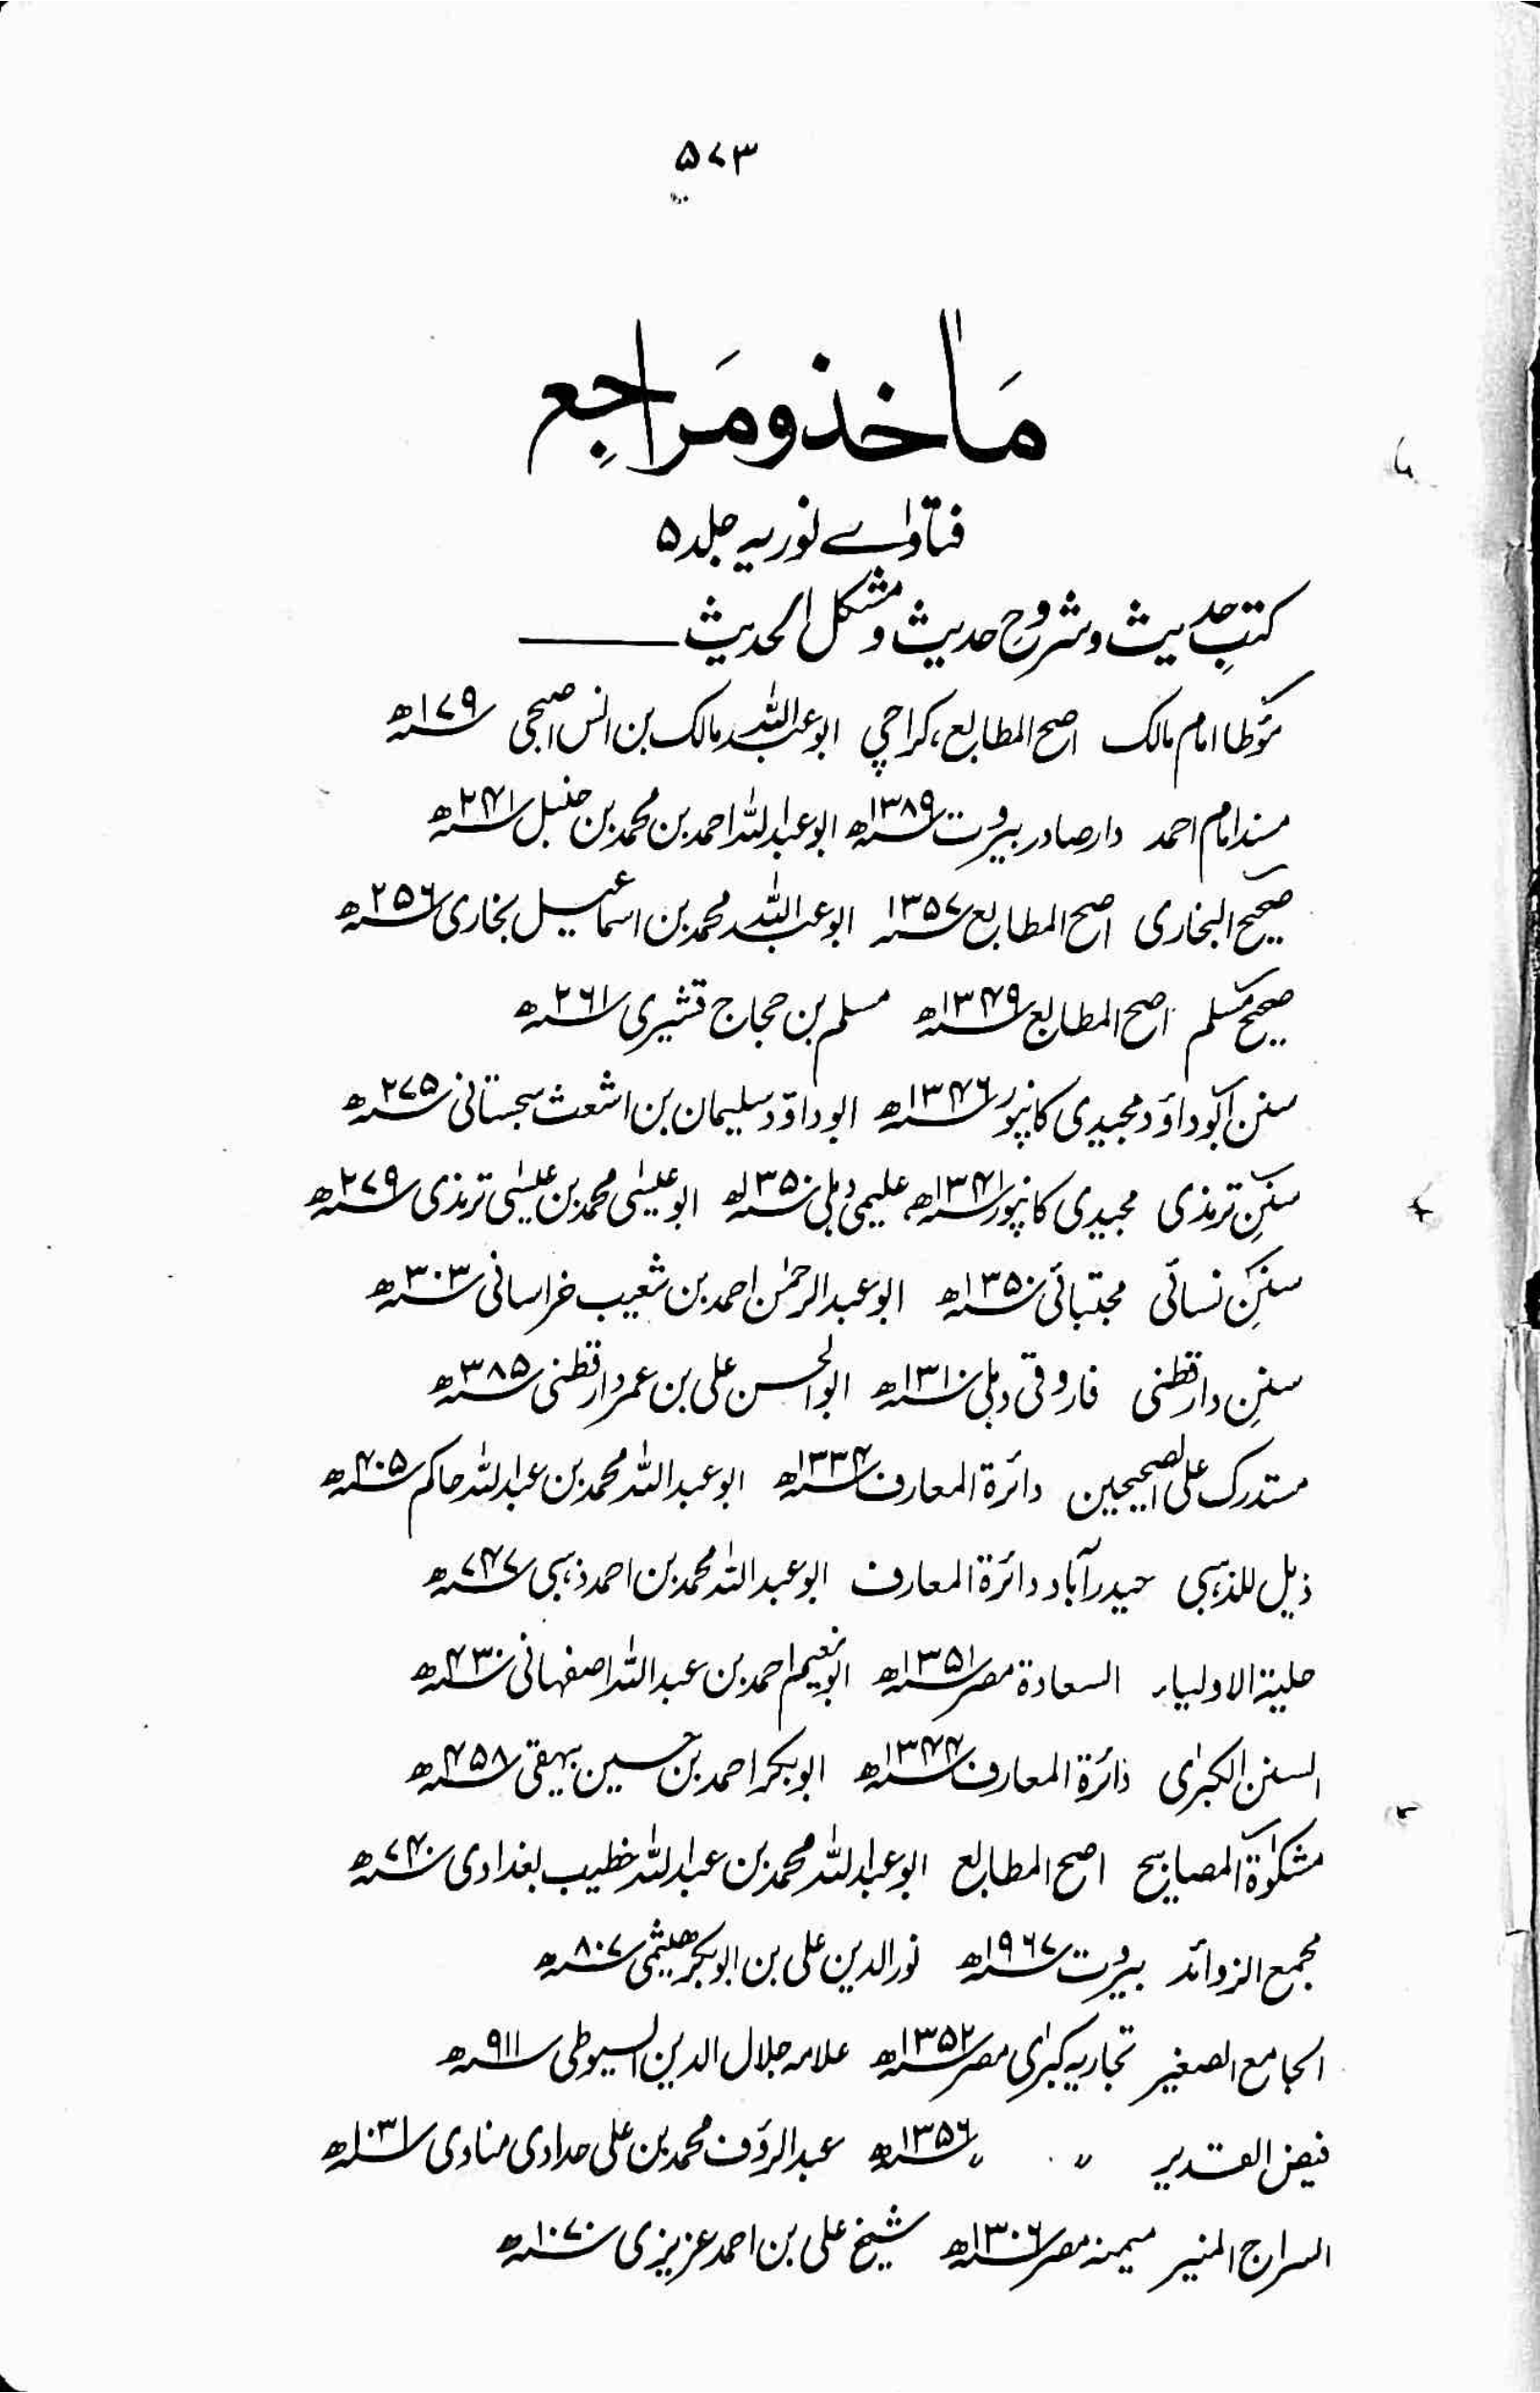 ۵۷۳
مَاٰخذ و مَراجِع
فتاوٰے نوریہ جلد ۵
کتبِ حدیث و شروحِ حدیث و مشکل الحدیث
مؤطا امام مالک اصح المطابع، کراچی ابو عبداللہ مالک بن انس اصبحی ۱۷۹ھ
مسند امام احمد دار صادر بیروت ۱۳۸۹ھ ابو عبداللہ احمد بن محمد بن حنبل ۲۴۱ھ
صحیح البخاری اصح المطابع ۱۳۵۷ ابو عبداللہ محمد بن اسماعیل بخاری ۲۵۶ھ
صحیح مسلم اصح المطابع ۱۳۴۹ھ مسلم بن حجاج قشیری ۲۶۱ھ
سنن ابوداؤد مجیدی کانپور ۱۳۴۶ھ ابوداؤد سلیمان بن اشعث سجستانی ۲۷۵ھ
سننِ ترمذی مجیدی کانپور ۱۳۴۱ھ، علیمی دہلی ۱۳۵۰ھ ابو عیسٰی محمد بن عیسٰی ترمذی ۲۷۹ھ
سننِ نسائی مجتبائی ۱۳۵۰ھ ابو عبدالرحمٰن احمد بن شعیب خراسانی ۳۰۳ھ
سننِ دارقطنی فاروقی دہلی ۱۳۱۰ھ ابو الحسن علی بن عمر دارقطنی ۳۸۵ھ
مستدرک علی الصحیحین دائرۃ المعارف ۱۳۳۴ھ ابو عبداللہ محمد بن عبداللہ حاکم ۴۰۵ھ
ذیل للذہبی حیدرآباد دائرۃ المعارف ابو عبداللہ محمد بن احمد ذہبی ۷۴۷ھ
حلیۃ الاولیاء السعادۃ مصر ۱۳۵۱ھ ابونعیم احمد بن عبداللہ اصفہانی ۴۳۰ھ
السنن الکبرٰی دائرۃ المعارف ۱۳۴۴ھ ابوبکر احمد بن حسین بیہقی ۴۵۸ھ
مشکوٰۃ المصابیح اصح المطابع ابو عبداللہ محمد بن عبداللہ خطیب بغدادی ۷۴۰ھ
مجمع الزوائد بیروت ۱۹۶۷ھ نورالدین علی بن ابوبکر ھیثمی ۸۰۷ھ
الجامع الصغیر تجاریہ کبرٰی مصر ۱۳۵۲ھ علامہ جلال الدین السیوطی ۹۱۱ھ
فیض القدیر 〃 〃 ۱۳۵۶ھ عبدالرؤف محمد بن علی حدادی مناوی ۱۰۳۱ھ
السراج المنیر میمنہ مصر ۱۳۰۶ھ شیخ علی بن احمد عزیزی ۱۰۷۰ھ